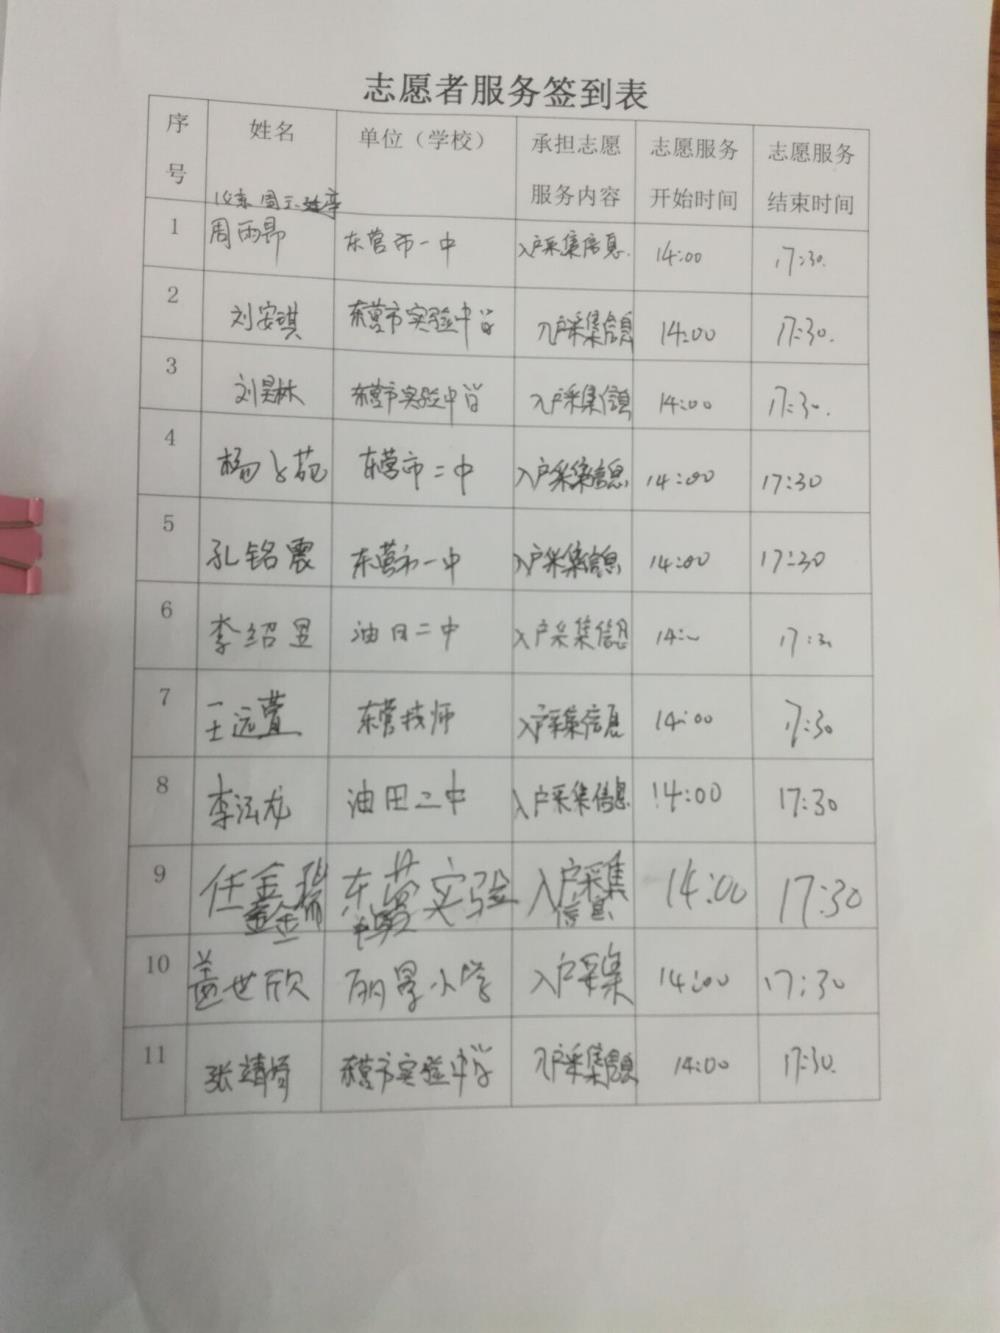 志愿者服务签到表
序号 姓名 单位（学校） 承担志愿服务内容 志愿服务开始时间 志愿服务结束时间
1 周雨昂 东营市一中 入户采集信息. 14:00 17:30.
2 刘安琪 东营市实验中学 入户采集信息 14:00 17:30.
3 刘昊林 东营市实验中学 入户采集信息 14:00 17:30.
4 杨 苑 东营市二中 入户采集信息 14:00 17:30
5 孔铭震 东营市一中 入户采集信息 14:00 17:30
6 李绍昱 油田二中 入户采集信息 14:~ 17:30
7 王远萱 东营技师 入户采集信息 14:00 17:30
8 李泓龙 油田二中 入户采集信息 14:00 17:30
9 任金瑞 东营实验中学 入户采集信息 14:00 17:30
10 盖世欣 丽景小学 入户采集 14:00 17:30
11 张靖 东营市实验中学 入户采集信息 14:00 17:30.